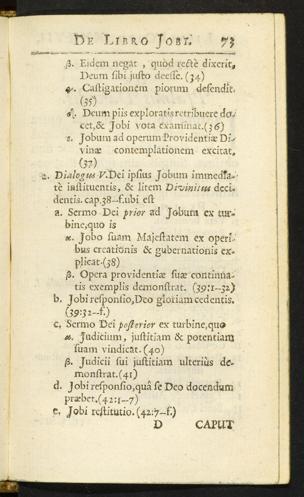 DE LIBRO JOBI. 73
β. Eidem negat, quòd rectè dixerit,
Deum sibi justo deesse. (34)
γ. Castigationem piorum defendit.
(35)
δ. Deum piis exploratis retribuere do-
cet, & Jobi vota examinat. (36)
ε. Jobum ad operum Providentiæ Di-
vinæ contemplationem excitat.
(37)
2. Dialogus V. Dei ipsius Jobum immedia-
tè instituentis, & litem Divinitus deci-
dentis. cap. 38--f. ubi est
a. Sermo Dei prior ad Jobum ex tur-
bine, quo is
α. Jobo suam Majestatem ex operi-
bus creationis & gubernationis ex-
plicat. (38)
β. Opera providentiæ suæ continna-
tis exemplis demonstrat. (39:1--32)
b. Jobi responsio, Deo gloriam cedentis.
(39:32--f.)
c. Sermo Dei posterior ex turbine, quo
α. Judicium, justitiam & potentiam
suam vindicat. (40)
β. Judicii sui justitiam ulteriùs de-
monstrat. (41)
d. Jobi responsio, quâ se Deo docendum
præbet. (42:1--7)
e. Jobi restitutio. (42:7--f.)
D CAPUT